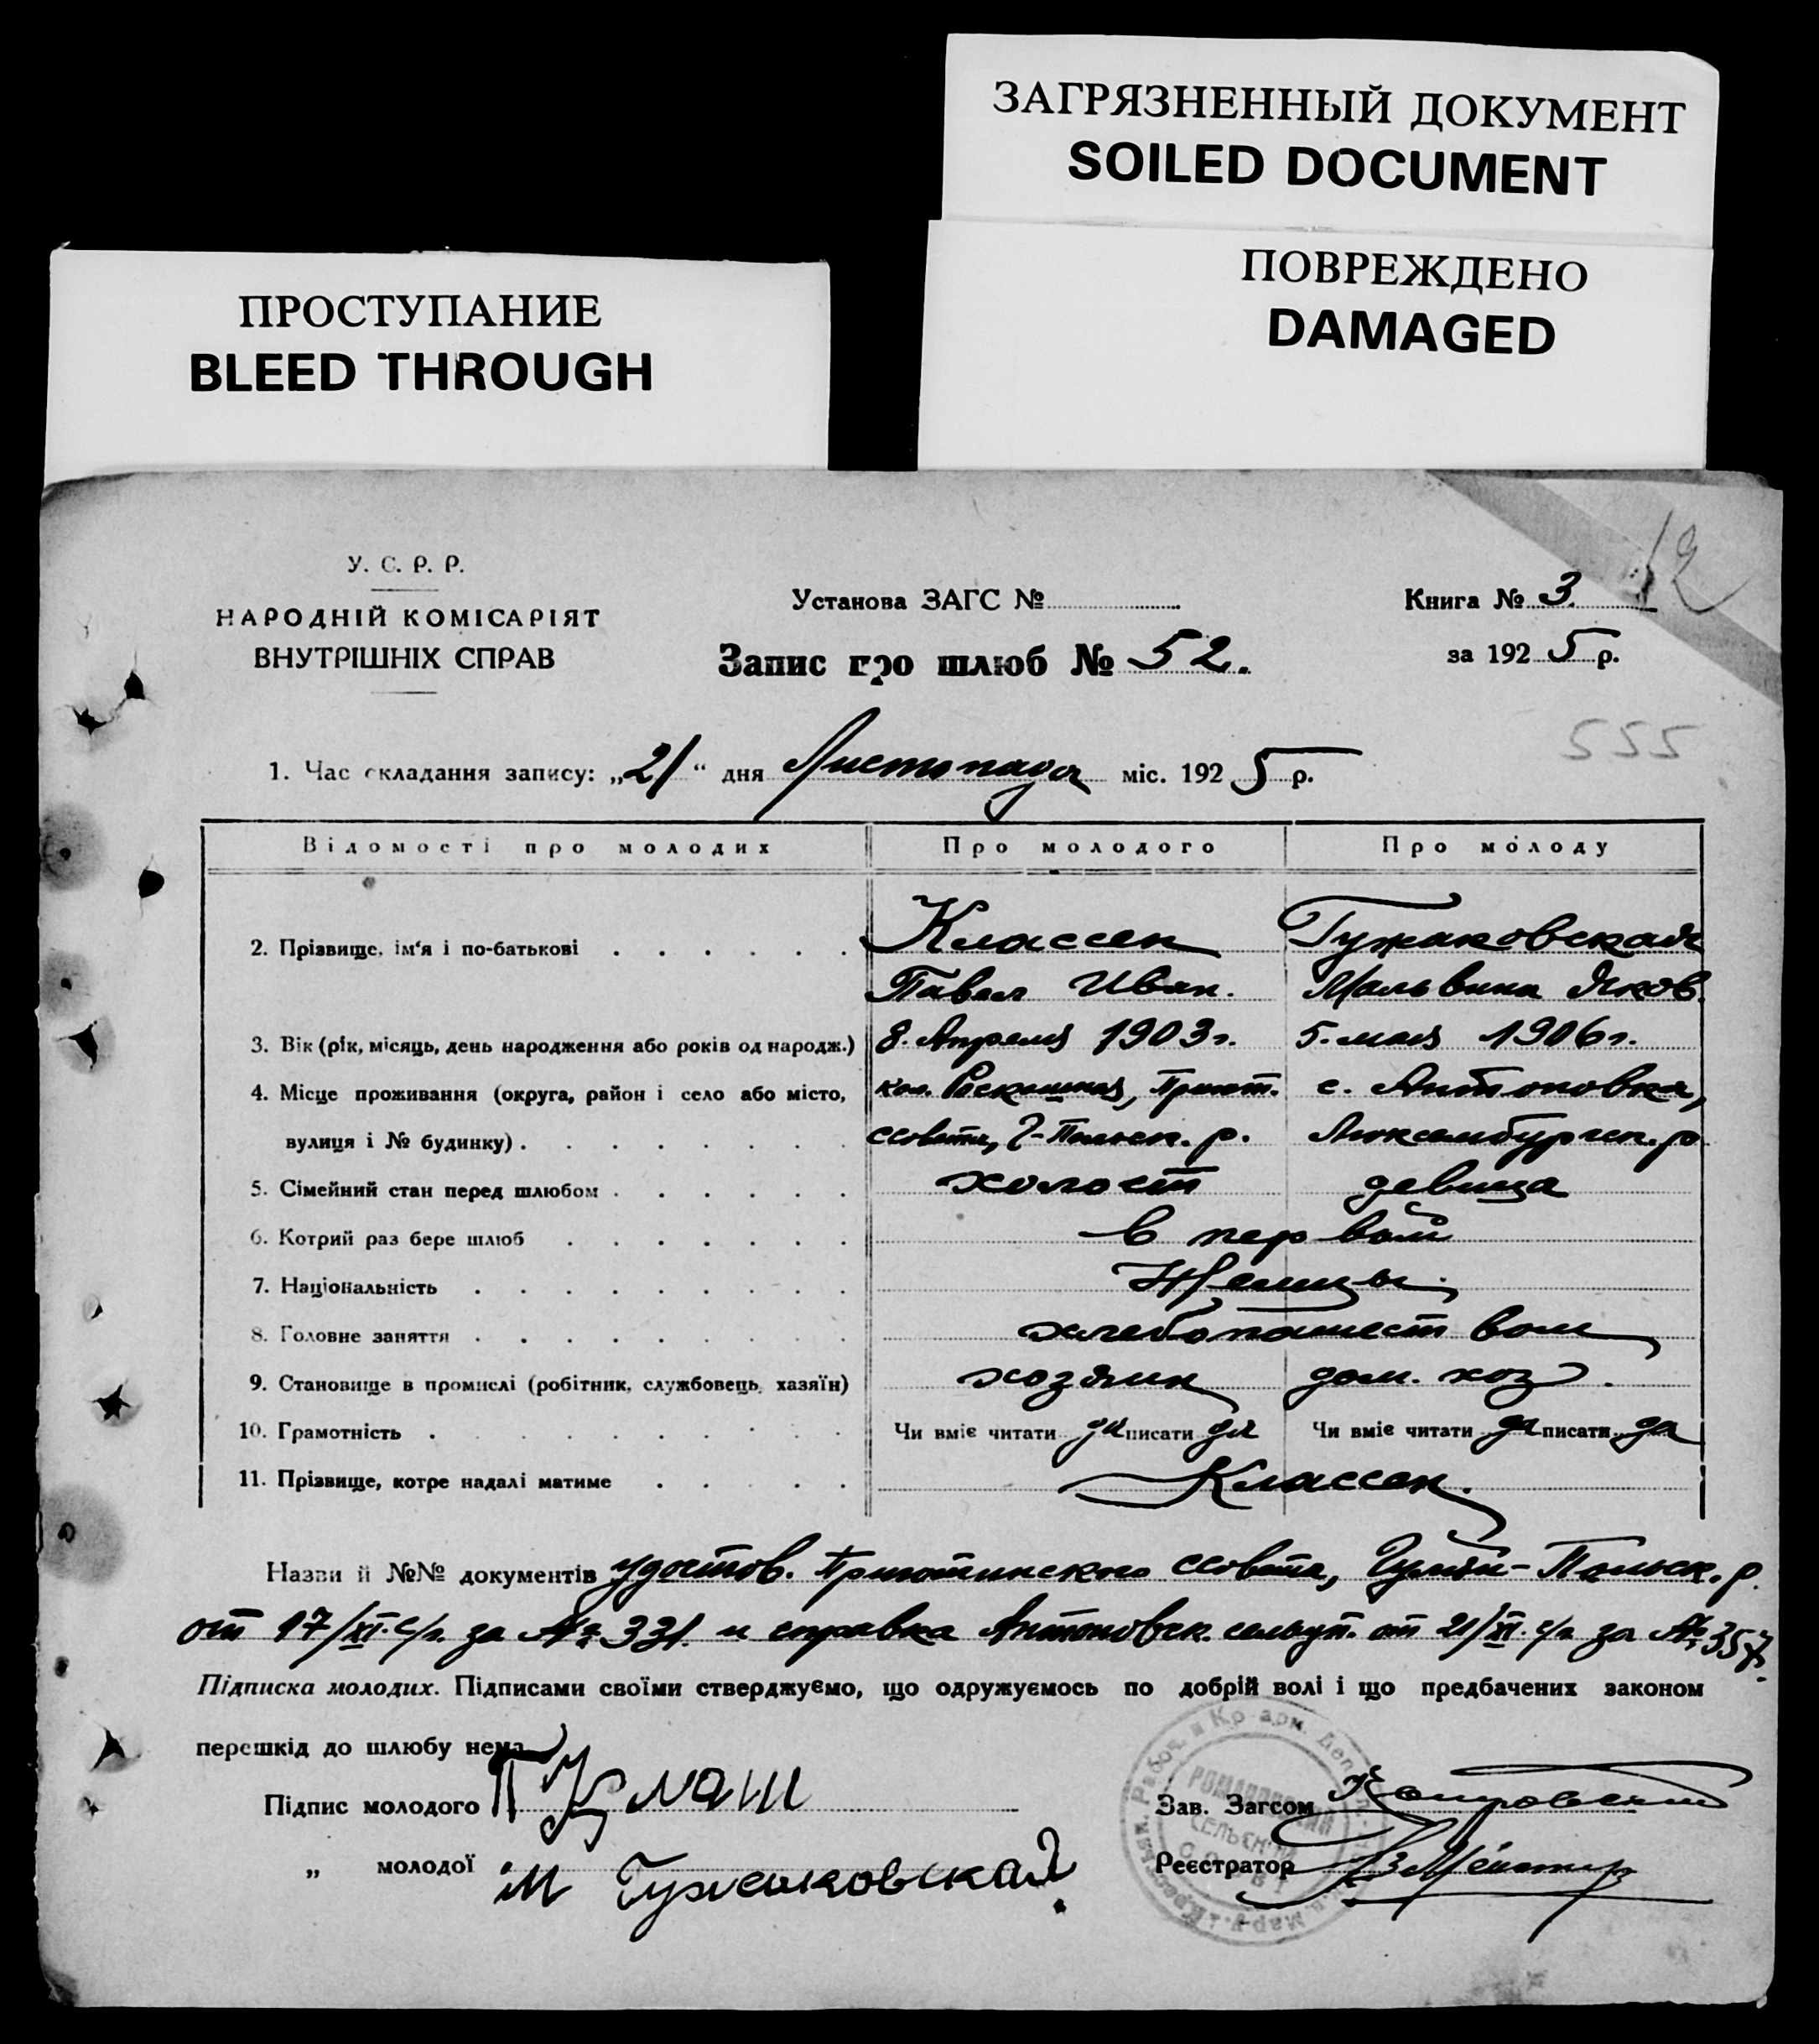 ЗАГРЯЗНЕННЫЙ ДОКУМЕНТ
SOILED DOCUMENT
ПОВРЕЖДЕНО
DAMAGED
ПРОСТУПАНИЕ
BLEED THROUGH
12
У. С. Р. Р.
НАРОДНІЙ КОМІСАРІЯТ
ВНУТРІШНІХ СПРАВ
Установа ЗАГС №
Запис про шлюб № 52.
Книга № 3.
за 1925 р.
555
1. Час складання запису: „21“ дня Листопада міс. 1925 р.
Відомості про молодих Про молодого Про молоду
2. Прізвище, ім'я і по-батькові Классен Гужаковская
Павел Иван. Мальвина Яков.
3. Вік (рік, місяць, день народження або років од народж.) 8. Апреля 1903 г. 5. мая 1906 г.
4. Місце проживання (округа, район і село або місто, кол. Роскошная, Приют. с. Антоновка,
вулиця і № будинку) ссовета, Г-Польск. р. Люксембургск. р.
5. Сімейний стан перед шлюбом холост девица
6. Котрий раз бере шлюб в первый
7. Національність Немцы.
8. Головне заняття хлебопашеством
9. Становище в промислі (робітник, службовець, хазяїн) хозяин дом. хоз.
10. Грамотність Чи вміє читати да писати да Чи вміє читати да писати да
11. Прізвище, котре надалі матиме Классен.
Назви й №№ документів удостов. Приютинского ссовета, Гуляй-Польск. р.
от 17/XI. с/г. за № 331. и справка Антоновск. сельуп. от 21/XI. с/г. за № 357.
Підписка молодих. Підписами своїми стверджуємо, що одружуємось по добрій волі і що предбачених законом
перешкід до шлюбу нема.
Підпис молодого П Клаш
„ молодої М Гужаковская
Зав. Загсом
Реєстратор